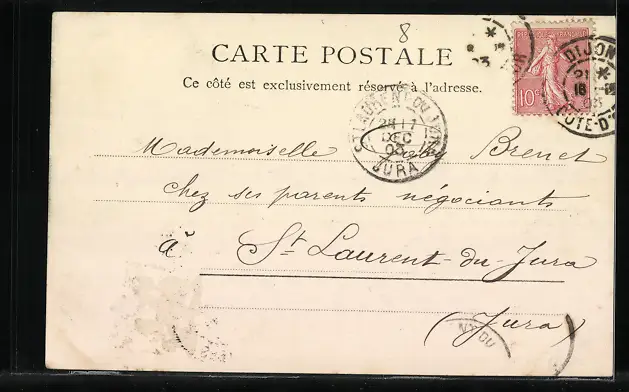 8
CARTE POSTALE
Ce côté est exclusivement réservé à l'adresse.
REPUBLIQUE FRANÇAISE
10c
DIJON
CÔTE-D'OR
ST LAURENT-DU-JURA
DEC
03
JURA
Mademoiselle Brenet
chez ses parents négociants
à St Laurent-du-Jura
(Jura)
NT DU